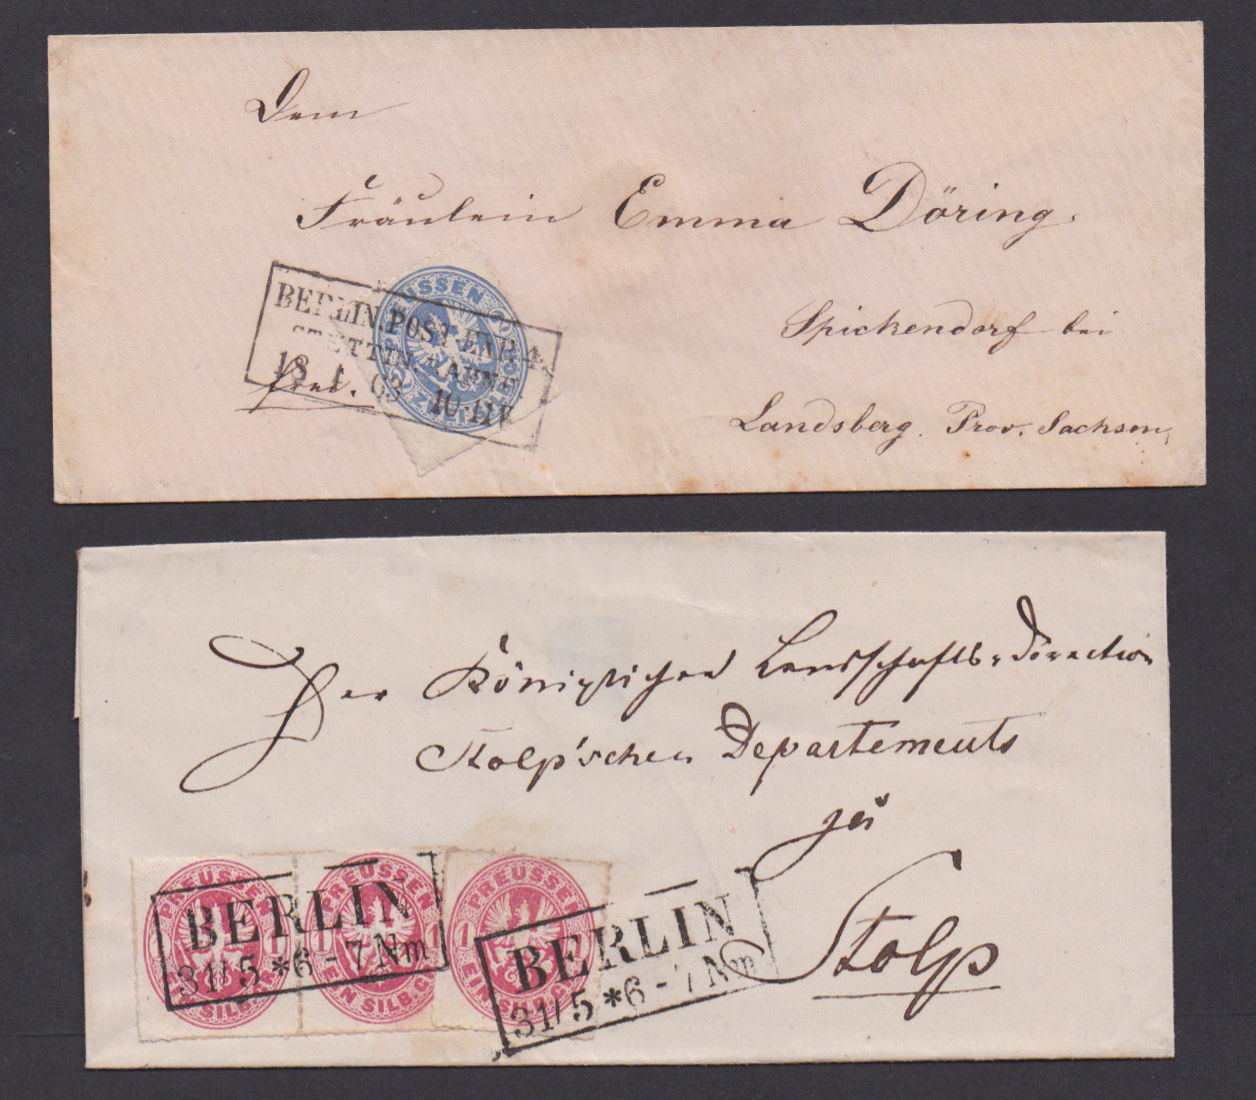 Dem
Fräulein Emma Döring.
Spickendorf bei
Landsberg. Prov. Sachsen,
frei.
PREUSSEN
BERLIN.POST-EXP.4.
STETTIN. BAHNH
18 1 63 10-11V
Der Königlichen Landschafts-Direction
Stolp'schen Departements
zu
Stolp
PREUSSEN
1 1
EIN SILB.GR.
PREUSSEN
1 1
EIN SILB.GR.
PREUSSEN
1
EIN SILB.GR.
BERLIN
31/5 *6-7 Nm
BERLIN
31/5 *6-7 Nm